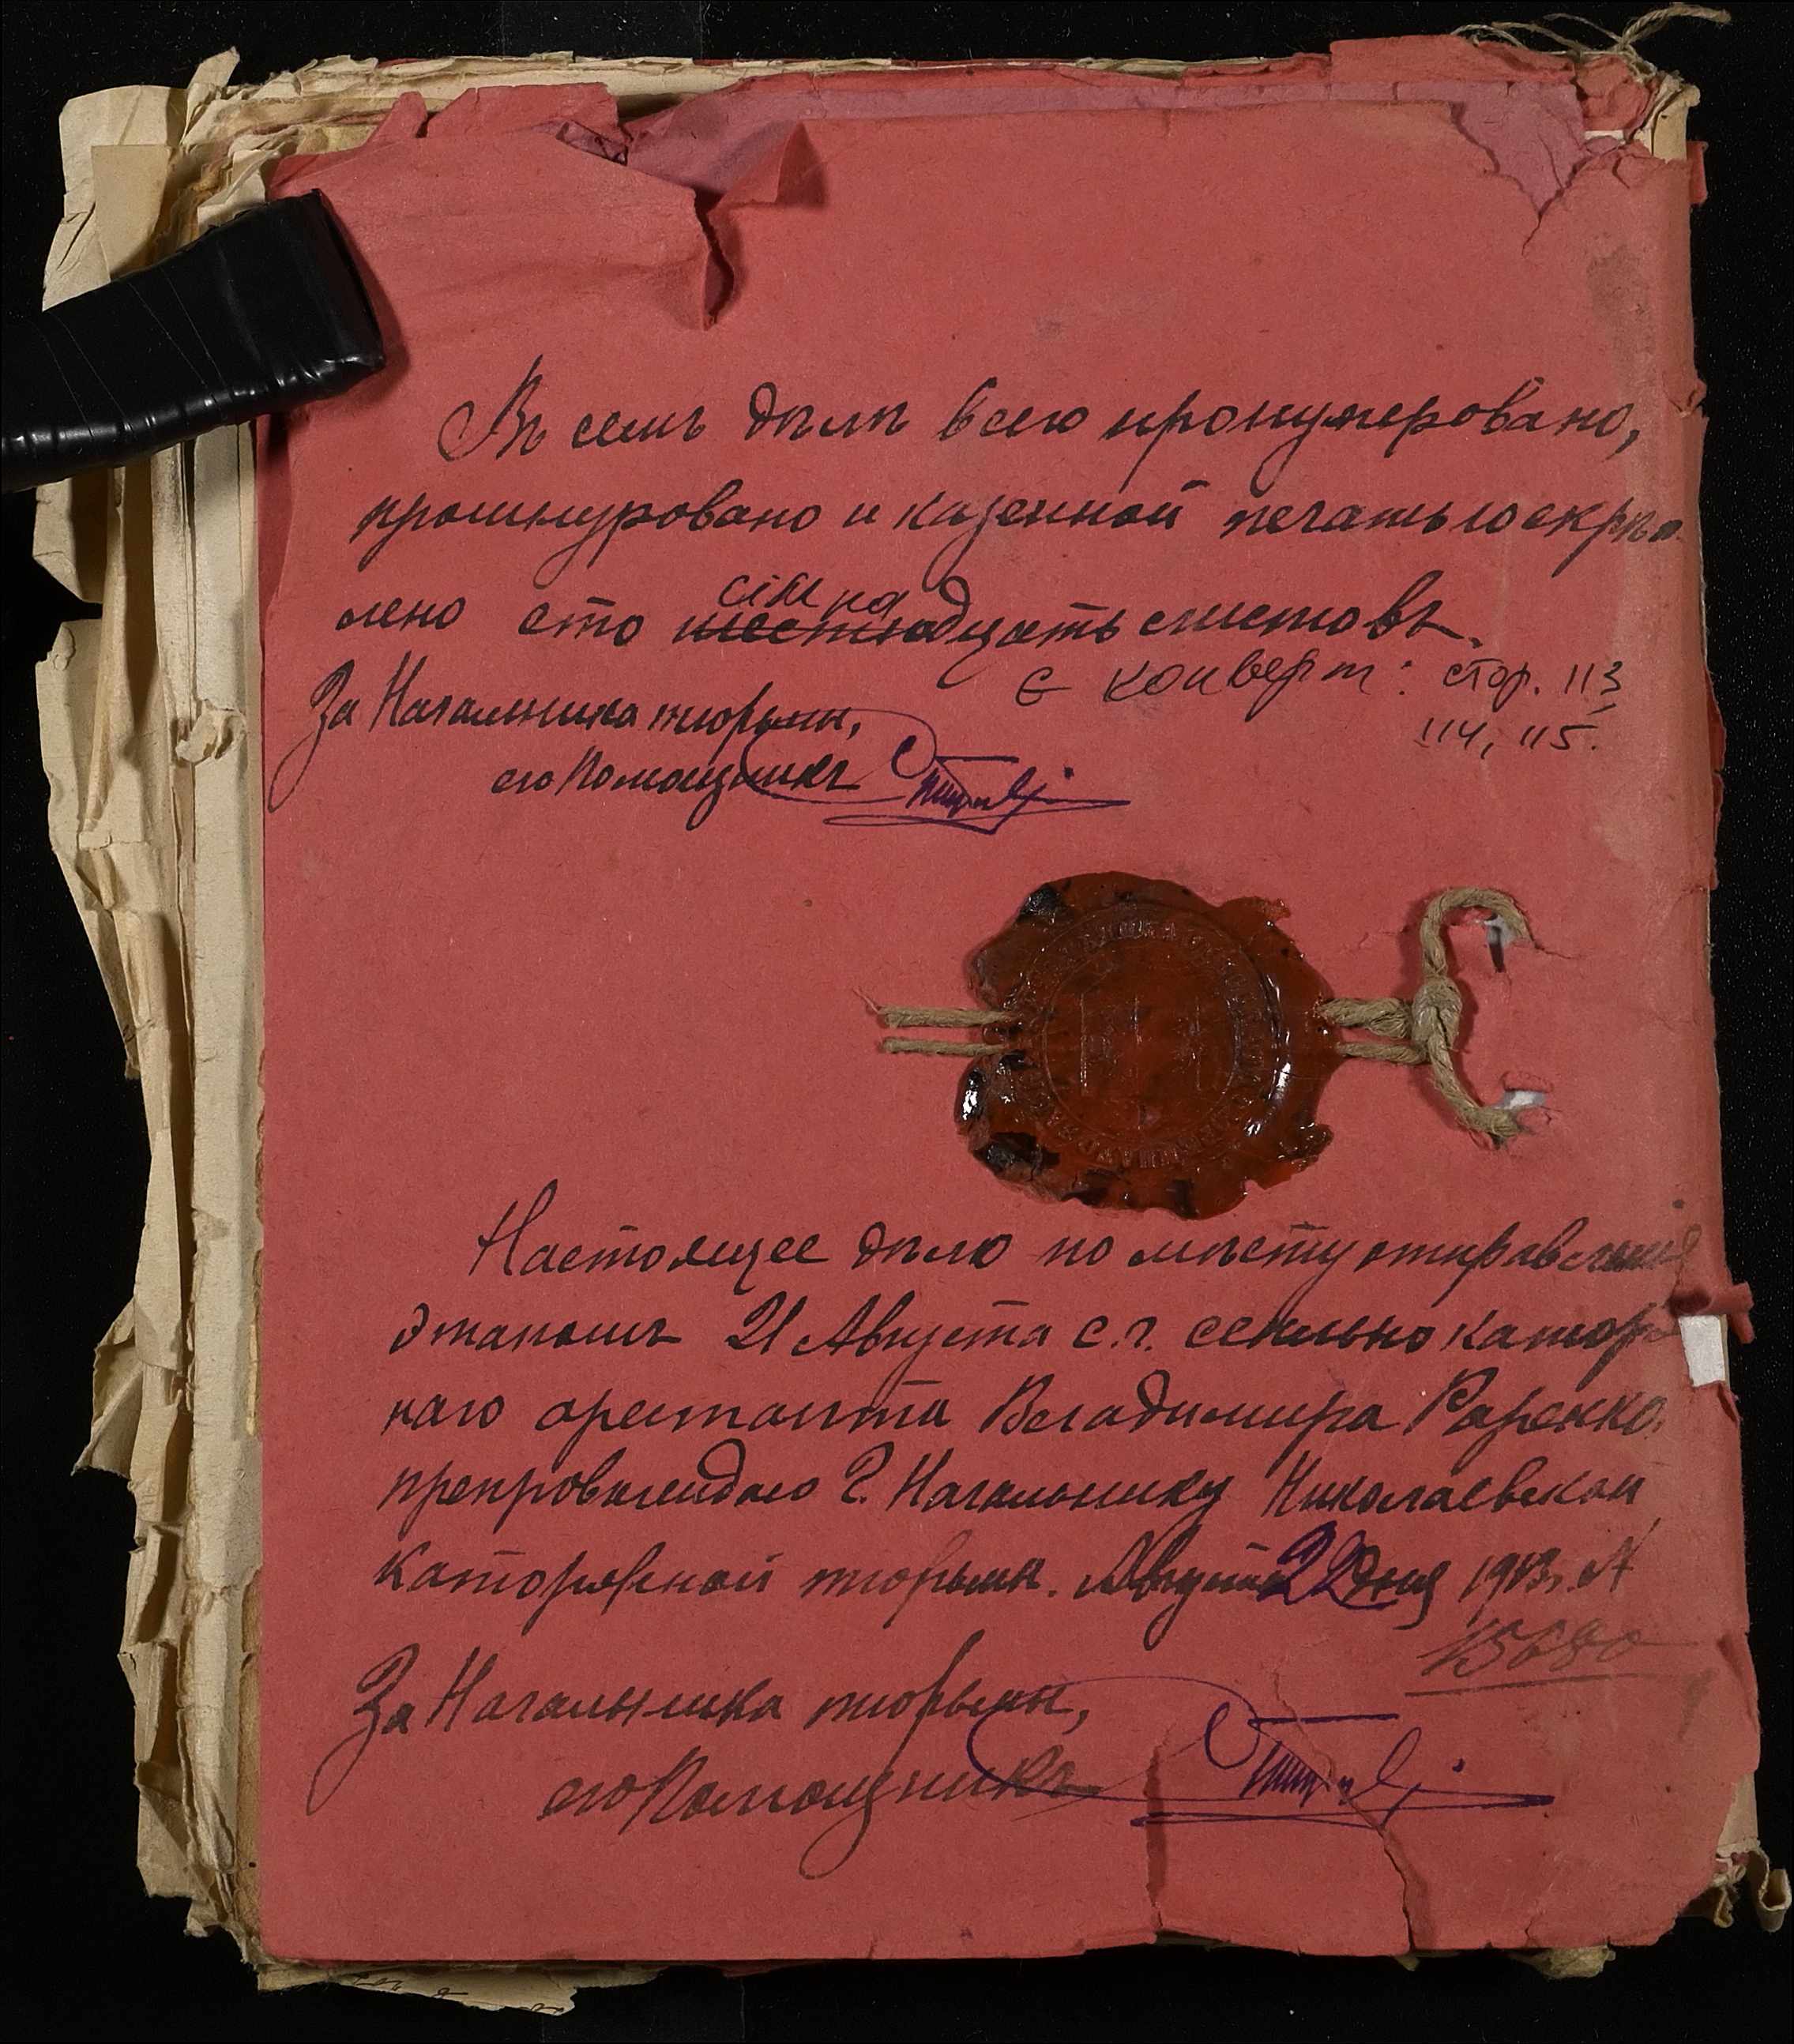 Въ семъ дѣлѣ всего пронумеровано,
прошнуровано и казенной печатью скрѣп
лено сто шестнадцать листовъ.
сім на
Є конверт: стор. 113
114, 115.
За Начальника тюрьмы,
его Помощникъ
Настоящее дѣло по мѣсту отправленія
этапомъ 21 Августа с.г. ссыльно каторж
наго арестанта Владимира
препровождаю Г. Начальнику Николаевской
каторжной тюрьмы. Августа 22 дня 1913 г. №
15680
За Начальника тюрьмы,
его Помощникъ